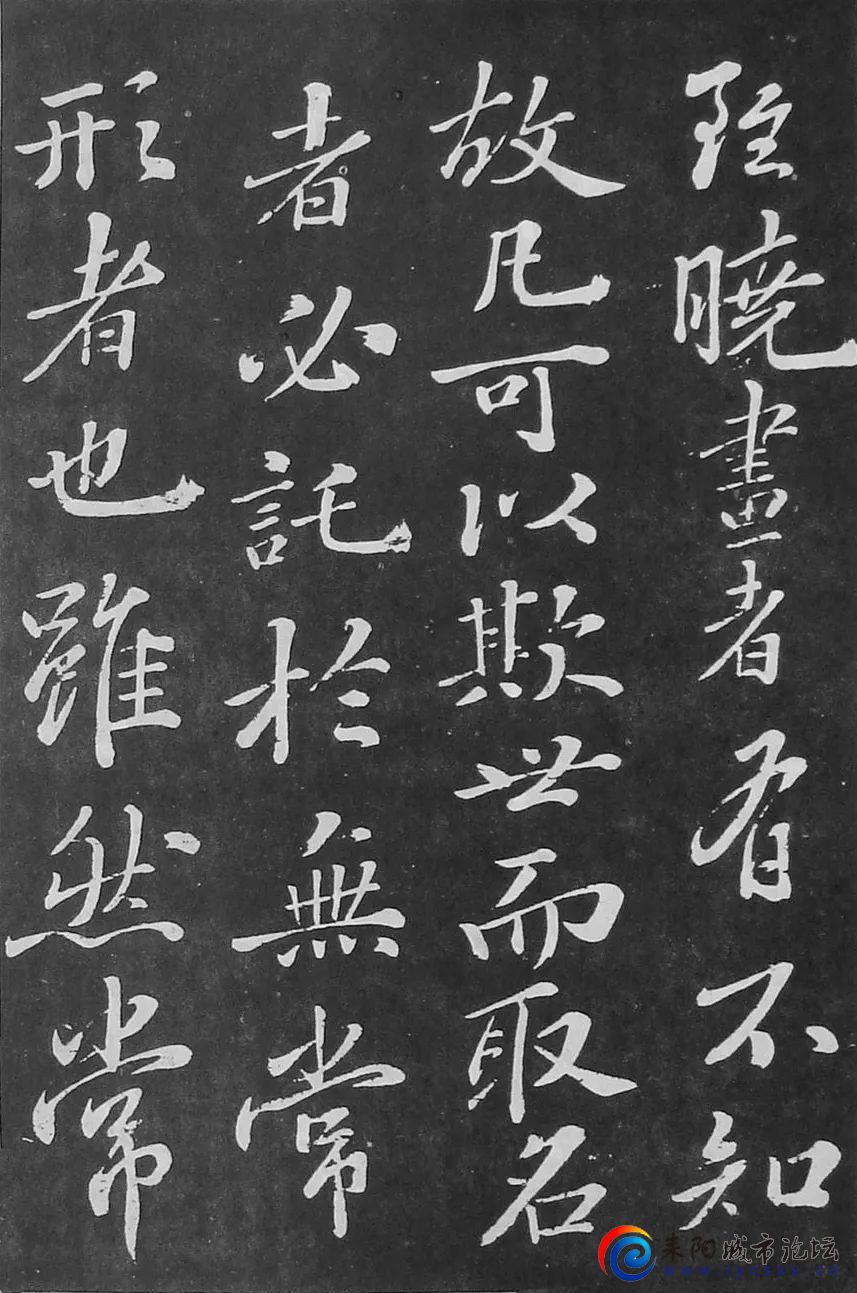 雖曉畫者有不知
故凡可以欺世而取名
者必託於無常
形者也雖然常
耒阳城市论坛